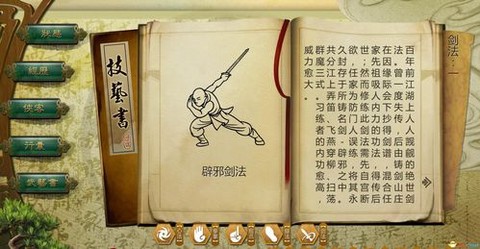 狀態
經歷
俠客
行囊
技藝書
辟邪剑法
剑法 一
百年前江湖上人人觊觎的绝世剑
法。曾一度失传，后由铸剑山庄
在因缘际会下抄得剑谱，混合任
家先祖吸人内力的功法，得传后
世，然而修练此剑法需先自宫断
欲，任家为防门人误练，将其永
久封存于所铸名剑-辟邪之中。
共分江上弄笛、飞燕穿柳、扫荡
群魔三式。习练者的内功愈高，
威力愈大。